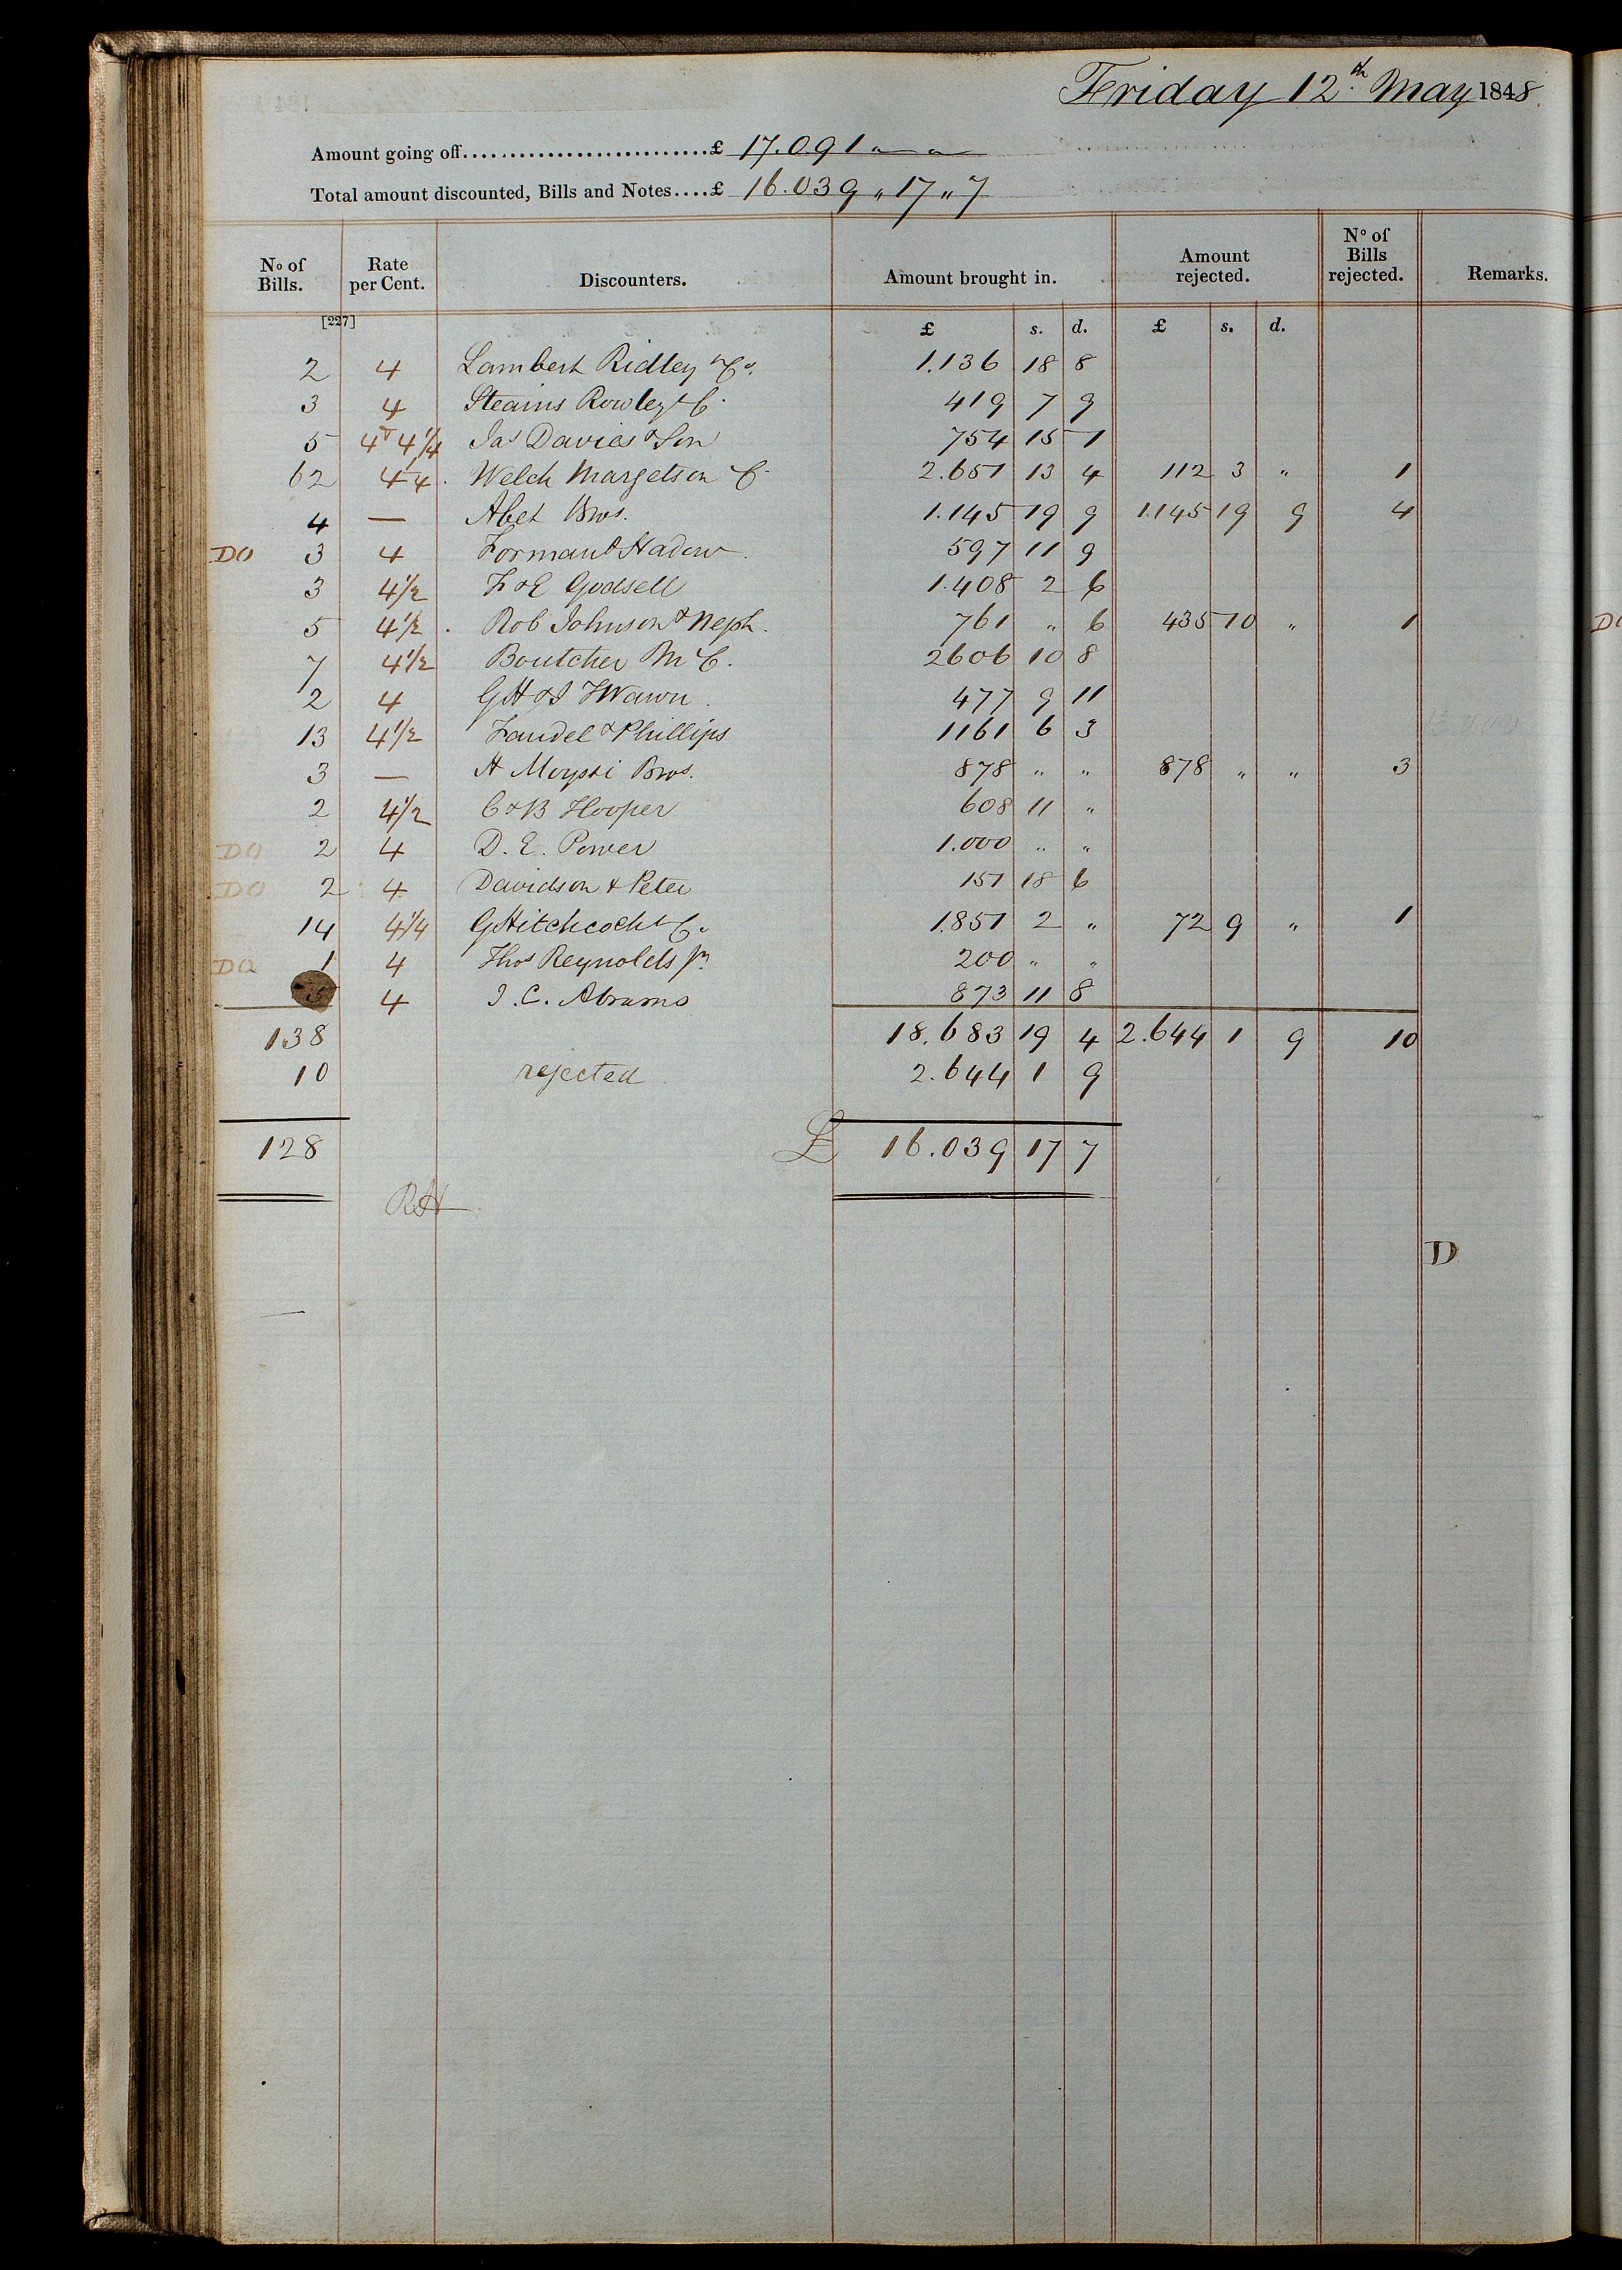 Friday 12.th May 1848
Amount going off..........................£ 17.091 " "
Total amount discounted, Bills and Notes....£ 16.039 " 17 " 7
No of Bills. Rate per Cent. Discounters. Amount brought in. Amount rejected. No of Bills rejected. Remarks.
[227] £ s. d. £ s. d.
2 4 Lambert Ridley & Co. 1.136 18 8
3 4 Steains Rowley & C. 419 7 9
5 4 & 4 1/4 Jas Davies & Son 754 15 1
62 4 1/4 Welch Margetson & C. 2.651 13 4 112 3 " 1
4 — Abet Bros. 1.145 19 9 1.145 19 9 4
DO 3 4 Forman & Hadow 597 11 9
3 4 1/2 F & E Godsell 1.408 2 6
5 4 1/2 Rob Johnson & Neph. 761 " 6 435 10 " 1
7 4 1/2 Boutcher M & C. 2606 10 8
2 4 GH & J Wawn 477 9 11
13 4 1/2 Faudel & Phillips 1161 6 3
3 — H Bros. 878 " " 878 " " 3
2 4 1/2 C & B Hooper 608 11 "
DO 2 4 D. E. Power 1.000 " "
DO 2 4 Davidson & Peter 151 18 6
14 4 1/4 G Hitchcock & C. 1.851 2 " 72 9 " 1
DO 1 4 Thos Reynolds Jr. 200 " "
5 4 J. C. Abrams 873 11 8
138 18.683 19 4 2.644 1 9 10
10 rejected 2.644 1 9
128 £ 16.039 17 7
RH
D